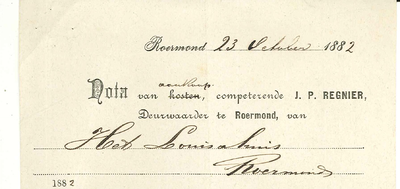 Roermond 23 October 1882
aankoop
Nota van kosten, competerende J. P. REGNIER,
Deurwaarder te Roermond, van
Het Louisahuis
Roermond
1882